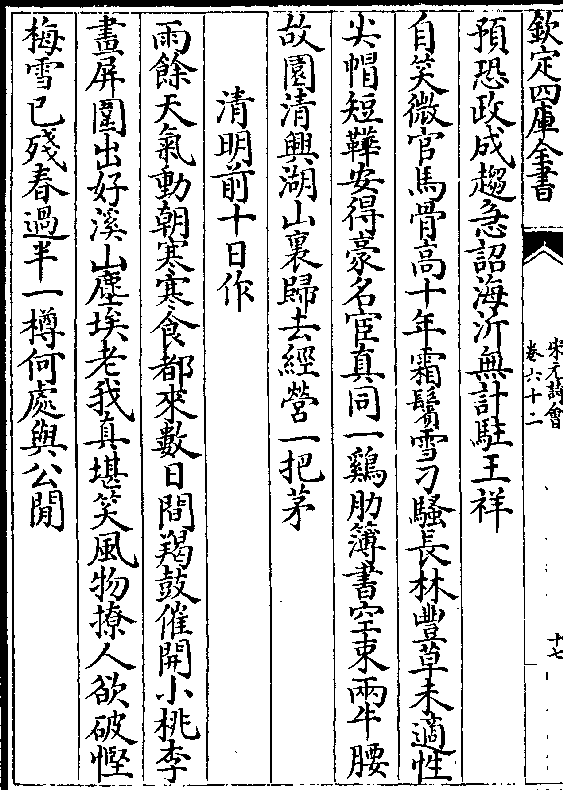 欽定四庫全書
宋元詩會
卷六十二
十七
預恐政成趨急詔海沂無計駐王祥
自笑微官馬骨高十年霜鬢雪刁騷長林豐草未適性
尖帽短鞾安得豪名宦真同一鷄肋簿書空束兩牛腰
故園清興湖山裏歸去經營一把茅
清明前十日作
雨餘天氣動朝寒寒食都來數日間羯鼓催開小桃李
畫屏圍出好溪山塵埃老我真堪笑風物撩人欲破慳
梅雪已殘春過半一樽何處與公閒